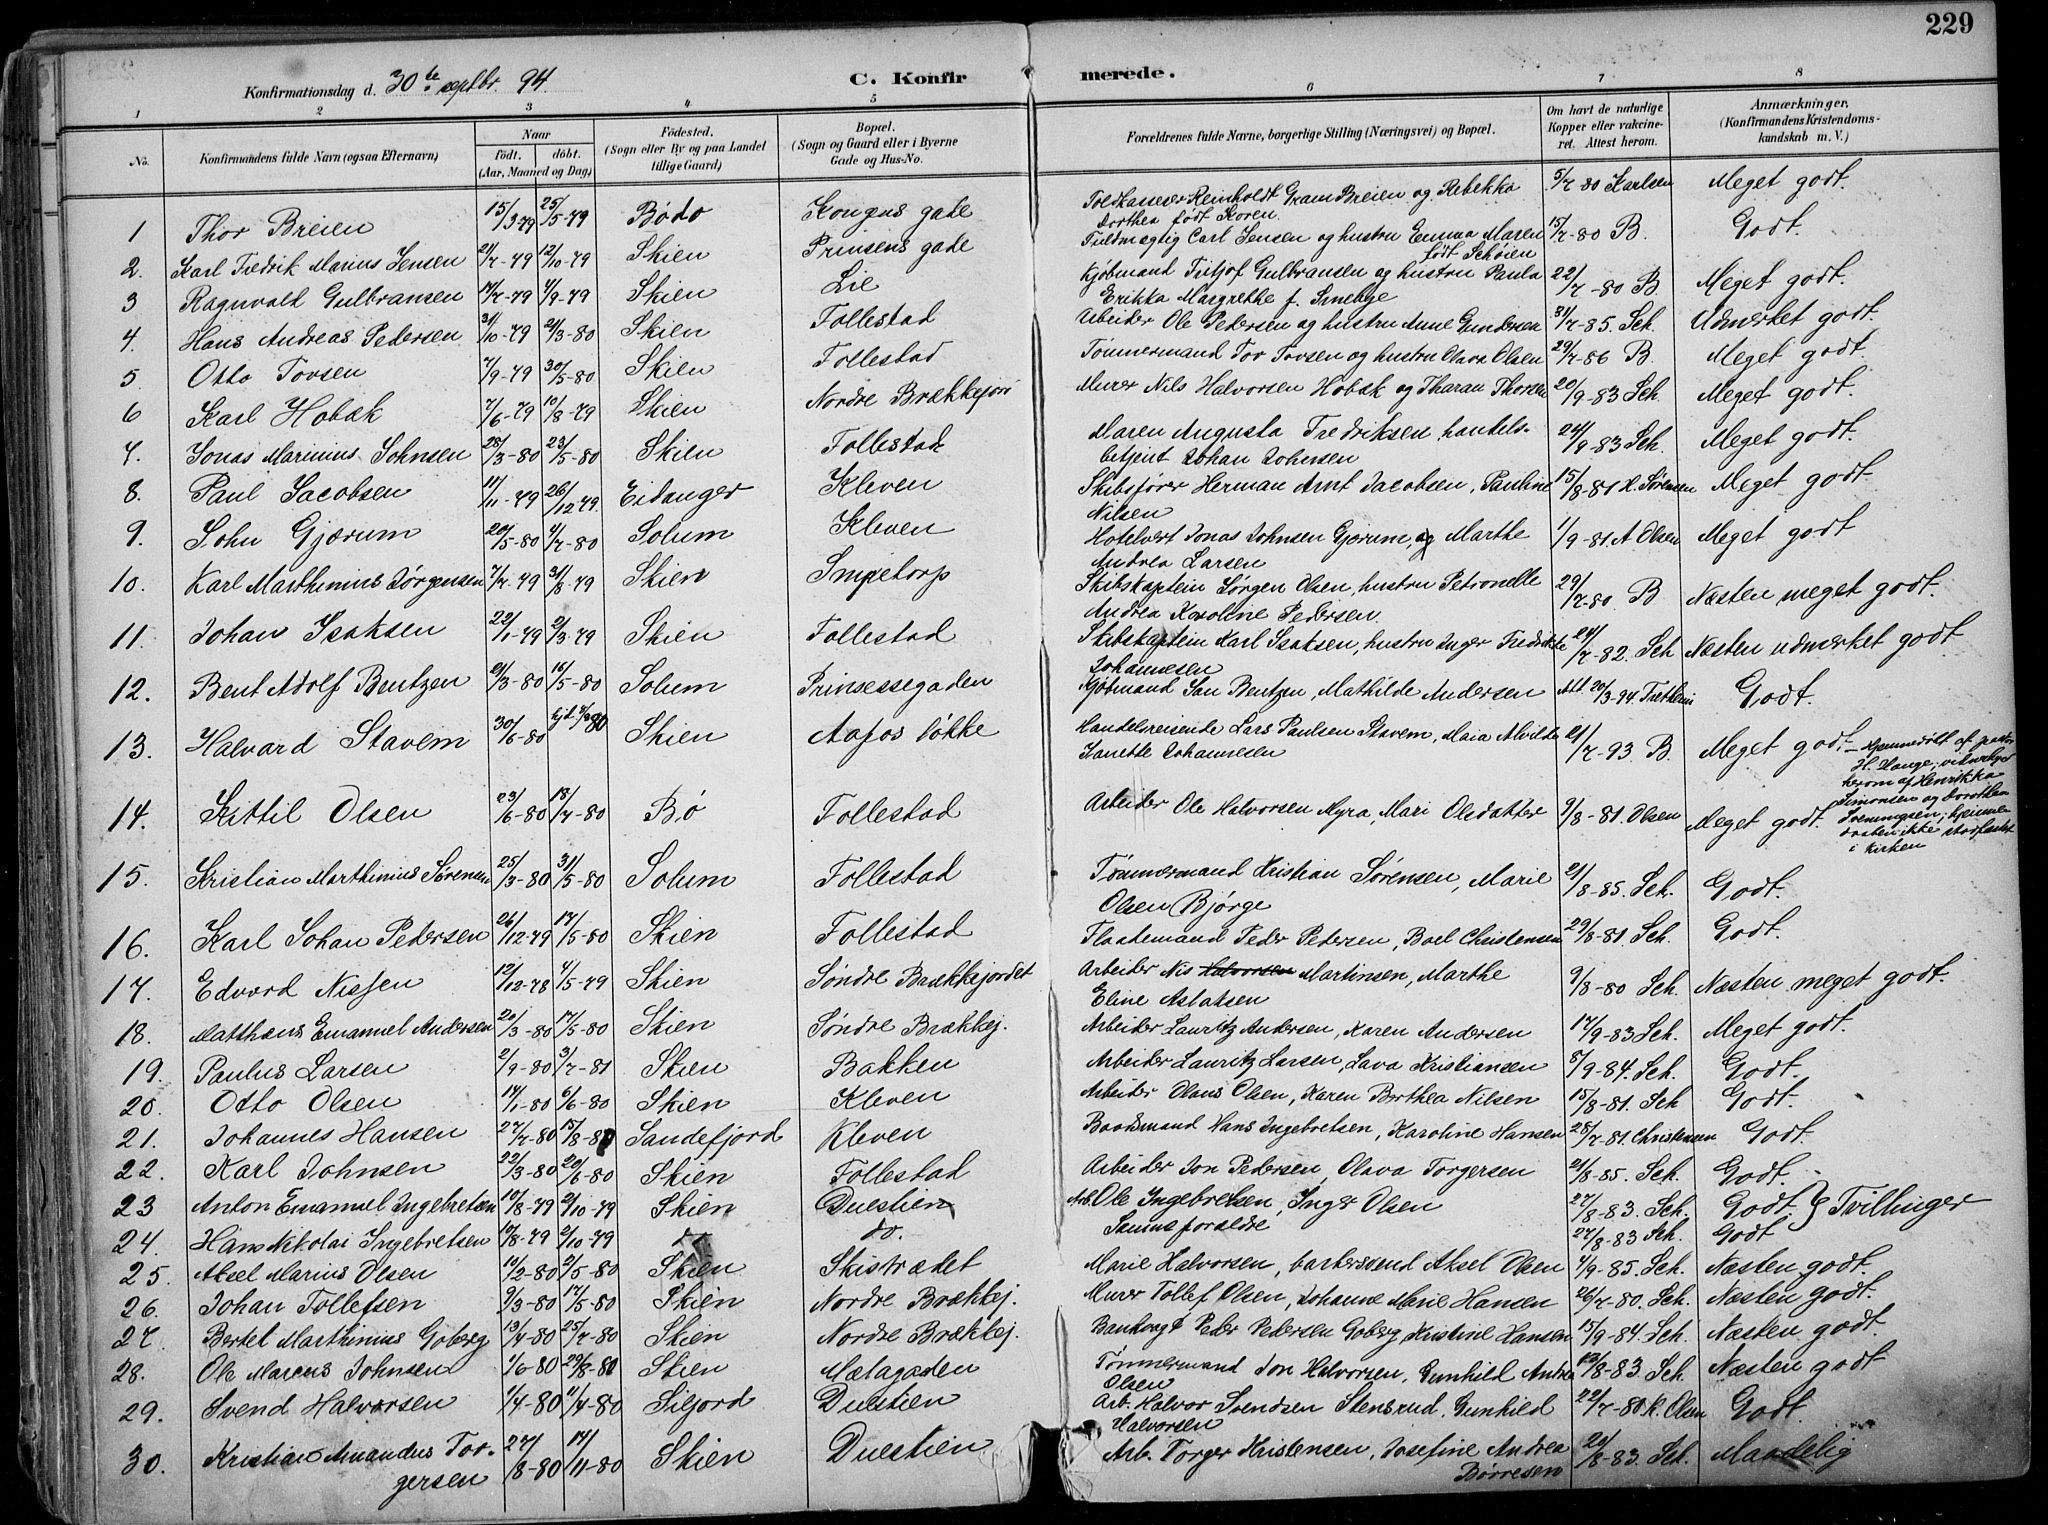 229
Konfirmationsdag d. 30te septbr. 94. C. Konfirmerede.
1 2 3 4 5 6 7 8
No. Konfirmandens fulde Navn (ogsaa Efternavn) Naar födt. döbt. (Aar, Maaned og Dag) Födested. (Sogn eller By og paa Landet tillige Gaard) Bopæl. (Sogn og Gaard eller i Byerne Gade og Hus-No. Forældrenes fulde Navne, borgerlige Stilling (Næringsvei) og Bopæl. Om havt de naturlige Kopper eller vakcineret. Attest herom. Anmærkninger. (Konfirmandens Kristendomskundskab m. V.)
1 Thor Breien 15/3 79 25/5-79 Bodo Kongens gade Toldkasserer Reinholdt Gram Breien og Rebekka Dorthea født Koren. 5/7-80 Karlsen Meget godt.
2. Karl Fredrik Marius Jensen 21/7-79 12/10-79 Skien Prinsens gade Fuldmægtig Carl Jensen og hustru Emma Maren født Schöien 15/7-80 B. Godt.
3 Ragnvald Gulbransen 17/7-79 4/9-79 Skien Lie Kjøbmand Fritjof Gulbransen og hustru Paula Erikka Margrethe f. 22/7-80 B Meget godt.
4. Hans Andreas Pedersen 31/10-79 21/3-80 Skien Follestad Arbeider Ole Pedersen og hustru Anne Gundersen 31/7-85. Sch. Udmerket godt.
5 Otto Tovsen 7/9-79 30/5-80 Skien Follestad Tømmermand Tov Tovsen og hustru Olava Olsen 29/7-86 B Meget godt.
6 Karl Hobæk 7/6-79 10/8-79 Skien Nordre Brækkejord Murer Nils Halvorsen Hobæk og Tharan Thorsen 20/9-83 Sch. Meget godt.
7. Jonas Marinius Johnsen 28/3-80 23/5-80 Skien Follestad Maren Augusta Fredriksen, handelsbetjent Johan Johnsen 24/9-83 Sch. Meget godt.
8. Paul Jacobsen 17/11-79 26/12-79 Eidanger Kleven Skibsfører Herman Arnt Jacobsen, Pauline Nilsen 15/8-81 H. Sørensen Meget godt
9. John Gjærum 20/5-80 4/7-80 Solum Kleven Hotelvert Jonas Johnsen Gjærum, og Marthe Andrea Larsen 1/9-81. A Olsen Meget godt
10. Karl Marthinius Jörgensen 7/7-79 31/8-79 Skien Snipetorp Skibskaptein Jørgen Olsen, hustru Petronelle Andrea Karoline Pedersen. 29/7-80. B Næsten meget godt.
11. Johan Isaksen 22/1-79 2/3-79 Skien Follestad Skibskaptein Karl Isaksen, hustru Inger Fredrikke Johannesen 24/7-82. Sch Næsten udmerket godt
12. Bent Adolf Bentzen 21/3-80 16/5-80 Solum Prinsessegaden Kjøbmand Jan Bentzen, Mathilde Andersen Att. 20/3-94. Godt.
13. Halvard Stavem 30/6-80 80 Skien Aafos løkke Handelsreisende Lars Paulsen Stavem, Maia Alvilde Janette Johannesen 21/7-93. B. Meget godt. – Hjemmedøbt af H. Hauge; herom af Henrikka Simonsen og Dorothea Svenningsen; hjemmedaaben ikke stadfæstet i kirken
14. Kittil Olsen 23/6-80 18/7-80 Bø Follestad Arbeider Ole Halvorsen Myra, Mari Olsdatter 9/8-81. Olsen Meget godt.
15. Kristian Marthinius Sørensen 25/3-80 31/5-80 Solum Follestad Tømmermand Kristian Sørensen, Marie Olsen Bjørge 21/8-85. Sch. Godt.
16. Karl Johan Pedersen 26/12-79 17/5-80 Skien Follestad Flaademand Peder Pedersen, Boel Christensen 29/8-81. Sch. Godt.
17. Edvard Nissen 12/12-78 4/5-79 Skien Søndre Brækkejordet Arbeider Nis Halvorsen Martinsen, Marthe Eline Aslaksen 9/8-80 Sch. Næsten meget godt.
18. Matthæus Emanuel Andersen 20/3-80 17/5-80 Skien Søndre Brækkej. Arbeider Lauritz Andersen, Karen Andersen 17/9-83 Sch. Meget godt.
19. Paulus Larsen 2/9-80 3/7-81 Skien Bakken Arbeider Lauritz Larsen, Lava Kristiansen 8/9-84. Sch. Godt.
20. Otto Olsen 14/1-80 6/6-80 Skien Kleven Arbeider Olaus Olsen, Karen Berthea Nilsen 15/8-81. Sch Godt.
21. Johannes Hansen 27/7-80 15/8-8 Sandefjord Kleven Baadsmand Hans Ingebretsen, Karoline Hansen 28/7-81 Christensen Godt.
22. Karl Johnsen 22/3-80 20/6-80 Skien Follestad Arbeider Jon Pedersen, Olava Torgersen 21/8-85. Sch. Godt.
23 Anton Emanuel Ingebretsen 10/8-79 2/10-79 Skien Duestien Arb. Ole Ingebretsen, Inger Olsen 27/8-83. Sch. Godt. } Tvillinger
24. Hans Nikolai Ingebretsen 10/8-79 2/10-79 do. do. Samme forældre 27/8-83 Sch. Godt
25. Aksel Marius Olsen 10/2-80 2/5-80 Skien Skistrædet Marie Halvorsen, barbersvend Aksel Olsen 4/9-85. Sch. Næsten godt.
26. Johan Tollefsen 9/3-80 17/5-80 Skien Nordre Brækkej. Murer Tollef Olsen, Johanne Marie Hansen 26/7-80. Sch. Næsten godt.
27. Bertel Marthinius Goberg 13/4-80 25/7-80 Skien Nordre Brækkej. Peder Pedersen Goberg, Kristine Hansen 15/9-84. Sch. Næsten godt.
28. Ole Marcus Johnsen 1/6-80 29/8-80 Skien Mælagaden Tømmermand Jon Halvorsen, Gunhild Andrea Olsen 13/8-83. Sch. Næsten godt
29. Svend Halvorsen 1/4-80 11/4-80 Siljord Duestien Arb. Halvor Svendsen Stensrud, Gunhild Halvorsen 22/7-80 K. Olsen Godt.
30. Kristian Amandus Torgersen 27/8-80 14/11-80 Skien Duestien Arb. Torger Kristensen, Josefine Andrea Børresen 20/8-83. Sch. Maadelig